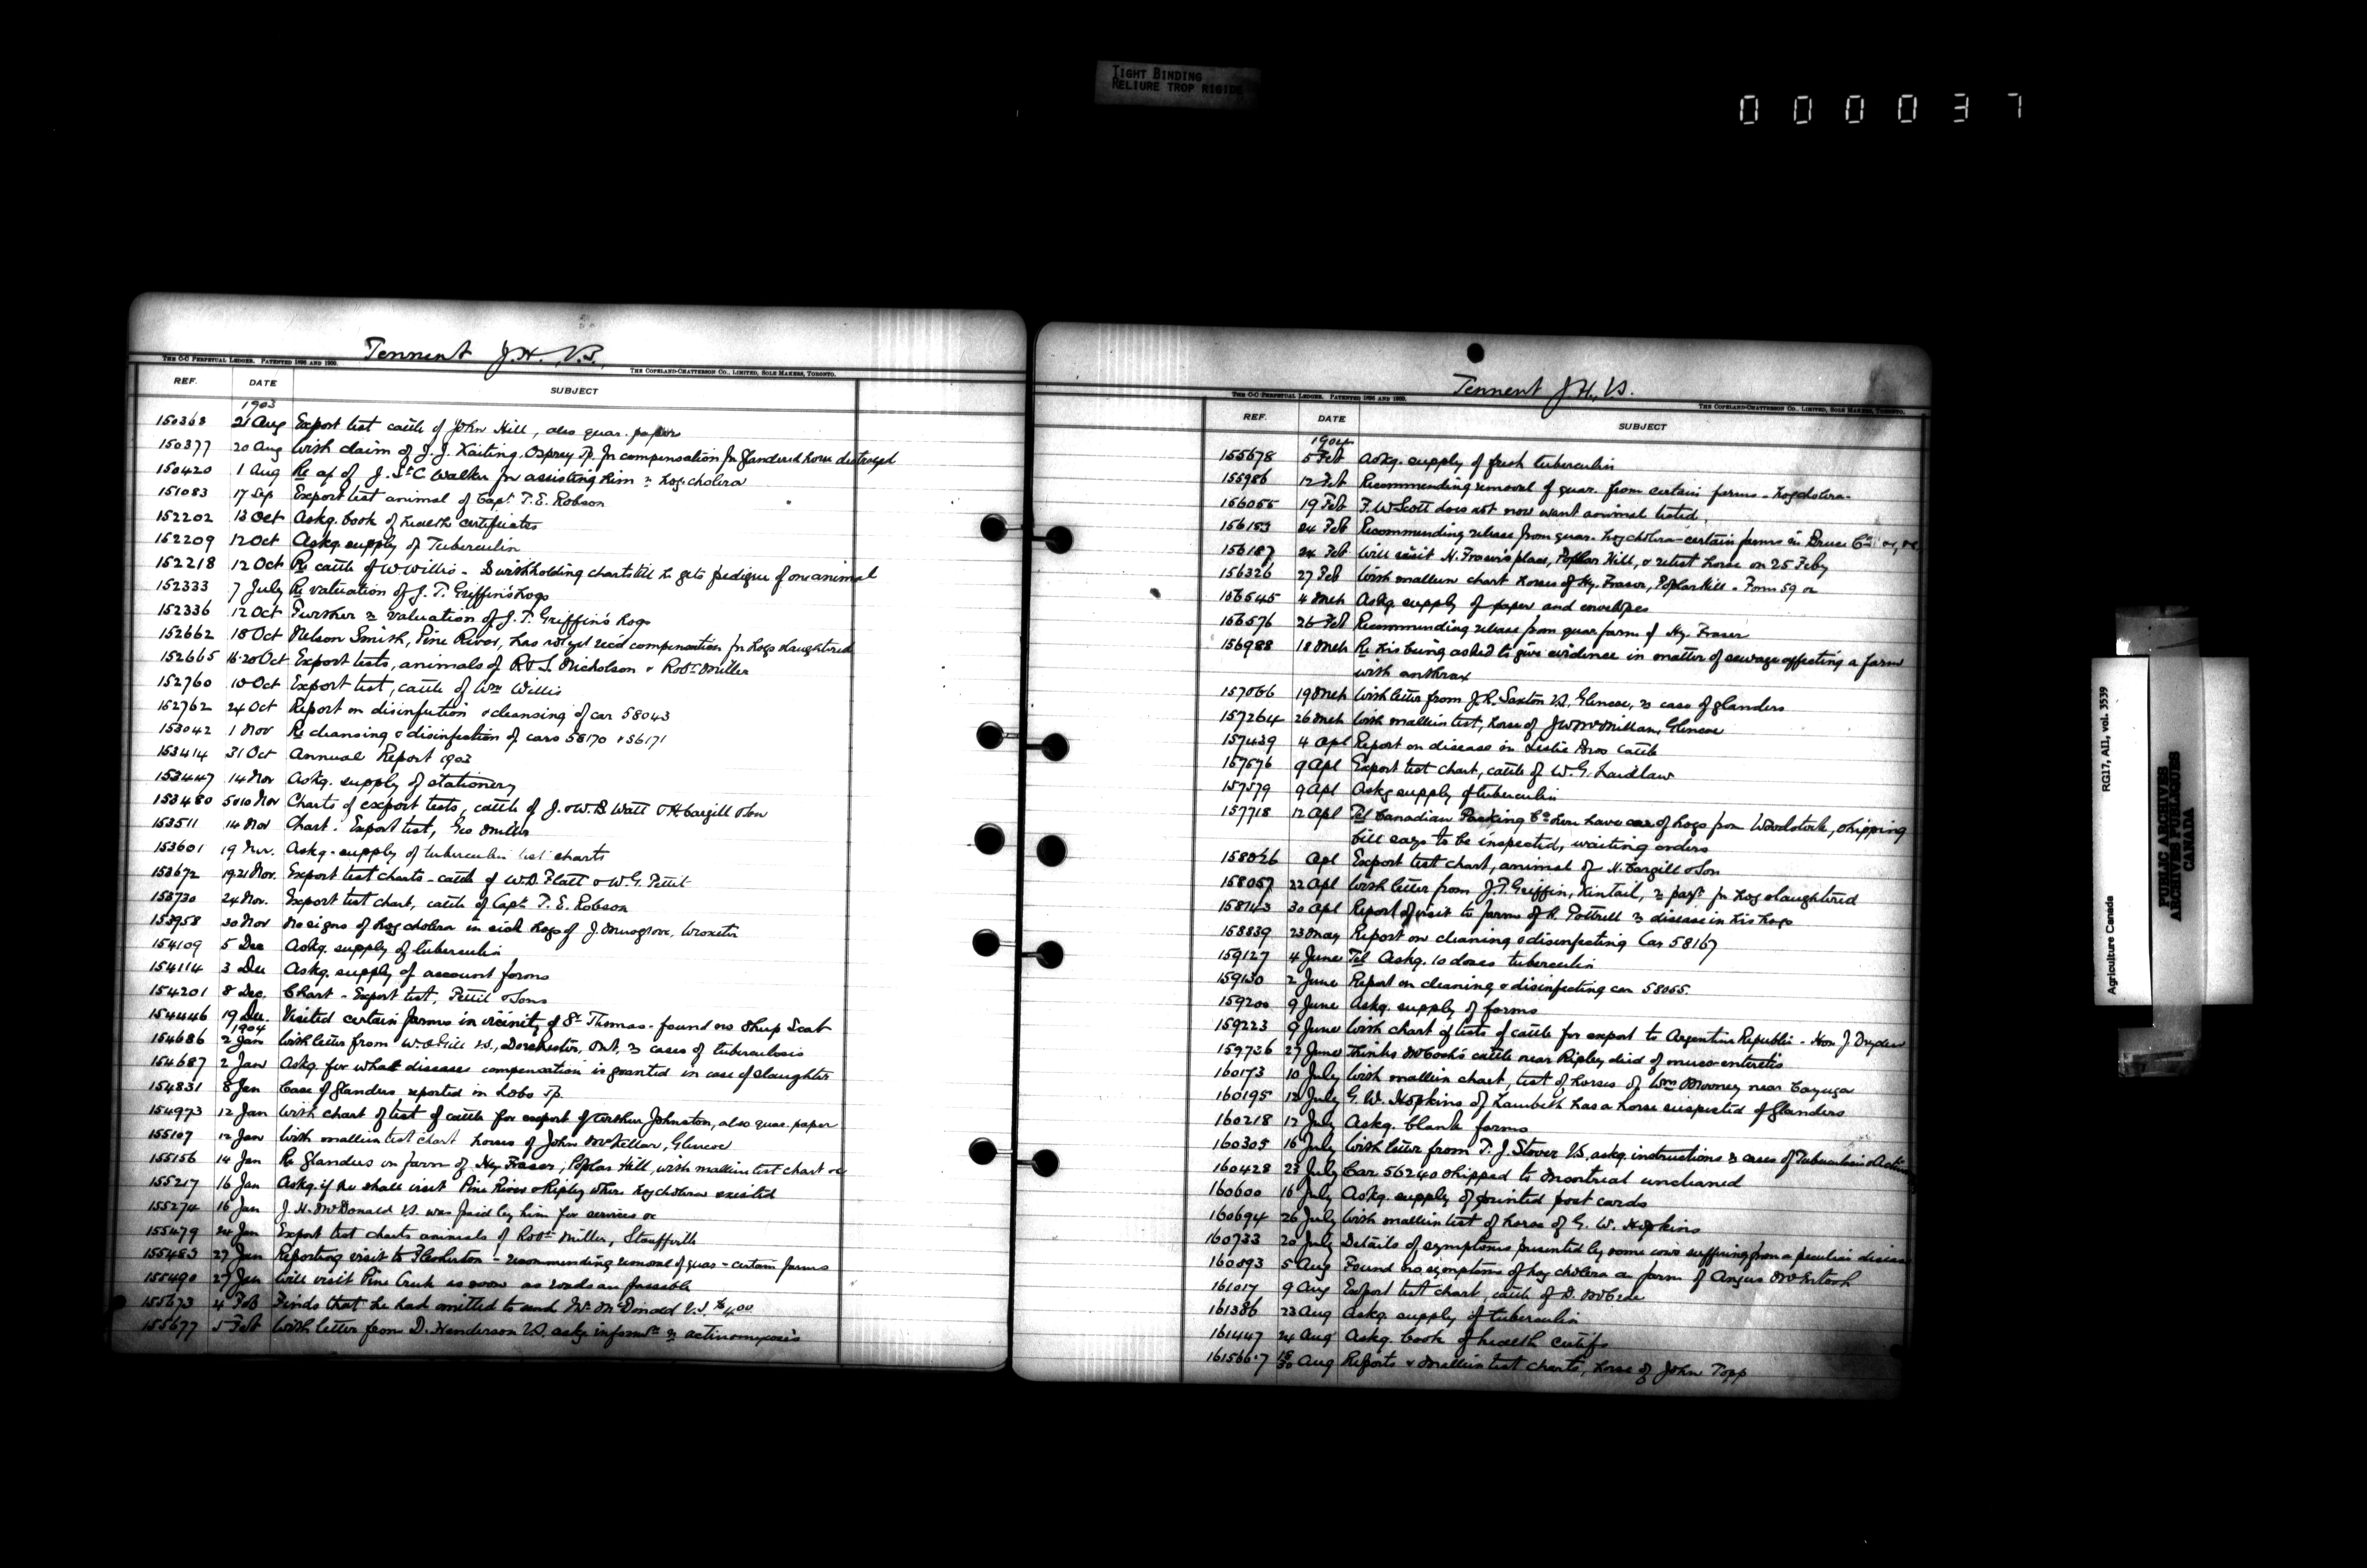 TIGHT BINDING
RELIURE TROP RIGIDE
000037
Tennent J.H. V.S.
THE C-C PERPETUAL LEDGER. PATENTED 1896 AND 1900.
THE COPELAND-CHATTERSON CO., LIMITED, SOLE MAKERS, TORONTO.
REF. DATE SUBJECT
1903
150368 21 Aug Export test cattle of John Hill, also quar. paper
150377 20 Aug With claim of J. J. Kaiting Osprey Tp. for compensation for glandered horse destroyed
150420 1 Aug Re a/c of J. St C Walker for assisting him re hog cholera
151083 17 Sep Export test animal of Capt. T. E. Robson
152202 13 Oct Askg. book of health certificates
152209 12 Oct Askg. supply of Tuberculin
152218 12 Oct Re cattle of W Willis - Is withholding charts till he gets pedigree of one animal
152333 7 July Re valuation of J. T. Griffin's hogs
152336 12 Oct Further re valuation of J. T. Griffin's hogs
152662 18 Oct Nelson Smith, Pine River, has not yet rec'd compensation for hogs slaughtered
152665 16-20 Oct Export tests, animals of R & S Nicholson & Robt Miller
152760 10 Oct Export test, cattle of Wm Willis
152762 24 Oct Report on disinfection & cleansing of car 58043
153042 1 Nov Re cleansing & disinfection of cars 58170 & 56171
153414 31 Oct Annual Report 1903
153447 14 Nov Askg. supply of stationery
153480 5 & 10 Nov Charts of export tests, cattle of J. & W. B Watt & H Cargill & Son
153511 14 Nov Chart. Export test, Geo Miller
153601 19 Nov. Askg. supply of tuberculin test charts
153672 19.21 Nov. Export test charts - cattle of W. D. Flatt & W. G. Pettit
153730 24 Nov. Export test chart, cattle of Capt. T. E. Robson
153958 30 Nov No signs of hog cholera in sick hogs of J. Musgrove, Wroxeter
154109 5 Dec Askg. supply of tuberculin
154114 3 Dec Askg. supply of account forms
154201 8 Dec. Chart - Export test, Pettit & Sons
154446 19 Dec. Visited certain farms in vicinity of St Thomas - found no Sheep Scab
1904
154686 2 Jan With letter from W. A Gill V.S., Dorchester, Ont, re cases of tuberculosis
154687 2 Jan Askg. for what diseases compensation is granted in case of slaughter
154831 8 Jan Case of glanders reported in Lobo Tp.
154973 12 Jan With chart of test of cattle for export of Arthur Johnston, also quar. paper
155107 12 Jan With mallein test chart horses of John McKellar, Glencoe
155156 14 Jan Re Glanders on farm of Hy Fraser, Poplar Hill, with mallein test chart &c
155217 16 Jan Askg. if he shall visit Pine River & Ripley where hog cholera existed
155274 16 Jan J. H. McDonald V.S. was paid by him for services &c
155479 24 Jan Export test charts animals of Robt Miller, Stouffville
155483 27 Jan Reporting visit to Flesherton - recommending removal of quar - certain farms
155490 27 Jan Will visit Pine Creek as soon as roads are passible
155673 4 Feb Finds that he had omitted to send Mr. McDonald V.S. $4.00
155677 5 Feb With letter from D. Henderson V.S. askg informtn re actinomycosis
Tennent J.H., V.S.
THE C-C PERPETUAL LEDGER. PATENTED 1896 AND 1900.
THE COPELAND-CHATTERSON CO., LIMITED, SOLE MAKERS, TORONTO.
REF. DATE SUBJECT
1904
155678 5 Feb Askg. supply of fresh tuberculin
155986 12 Feb Recommending removal of quar. from certain farms - hog cholera -
156055 19 Feb F. W. Scott does not now want animal tested
156153 24 Feb Recommending release from quar. hog cholera - certain farms in Bruce Co
156187 24 Feb Will visit H. Fraser's place, Poplar Hill, & retest horse on 25 Feby
156326 27 Feb With mallein chart horses of Hy. Fraser, Poplar Hill - Form 59 &c
156545 4 Mch Askg supply of paper and envelopes
156576 26 Feb Recommending release from quar farm of Hy. Fraser
156988 18 Mch Re his being asked to give evidence in matter of sewage affecting a farm
with anthrax
157066 19 Mch With letter from J. R. Saxton V.S, Glencoe, re case of glanders
157264 26 Mch With mallein test, horse of J W McMillan, Glencoe
157439 4 Apl Report on disease in Leslie Bros cattle
157576 9 Apl Export test chart, cattle of W. G. Laidlaw
157579 9 Apl Askg supply of tuberculin
157718 12 Apl Tel Canadian Packing Co here have car of hogs from Woodstock, shipping
bill says to be inspected, waiting orders
158026 Apl Export test chart, animal of H. Cargill & Son
158057 22 Apl With letter from J. T. Griffin, Kintail, re payt for hog slaughtered
158143 30 Apl Report of visit to farm of R. Pottrell re disease in his hogs
158839 23 May Report on cleaning & disinfecting Car 58167
159127 4 June Tel Askg. 10 doses tuberculin
159130 2 June Report on cleaning & disinfecting car 58055.
159200 9 June Askg. supply of forms
159223 9 June With chart of tests of cattle for export to Argentine Republic - Hon J Dryden
159736 27 June Thinks McCosh's cattle near Ripley died of muco-enteritis
160173 10 July With mallein chart, test of horses of Wm Mooney near Cayuga
160195 12 July G. W. Hopkins of Lambeth has a horse suspected of Glanders
160218 12 July Askg. blank forms
160305 16 July With letter from T. J. Stover V.S. askg. instructions re cases of Tuberculosis &
160428 23 July Car 56240 shipped to Montreal uncleaned
160600 16 July Askg. supply of printed post cards
160694 26 July With mallein test of horse of G. W. Hopkins
160733 20 July Details of symptoms presented by some cows suffering from a peculiar disease
160893 5 Aug Found no symptoms of hog cholera on farm of Angus McIntosh
161017 9 Aug Export test chart, cattle of D. McCrae
161386 23 Aug Askg. supply of tuberculin
161447 24 Aug Askg. book of health certifs
161566.7 18 30 Aug Reports & Mallein test charts, horse of John Topp
Agriculture Canada RG17, AII, vol. 3539
PUBLIC ARCHIVES
ARCHIVES PUBLIQUES
CANADA